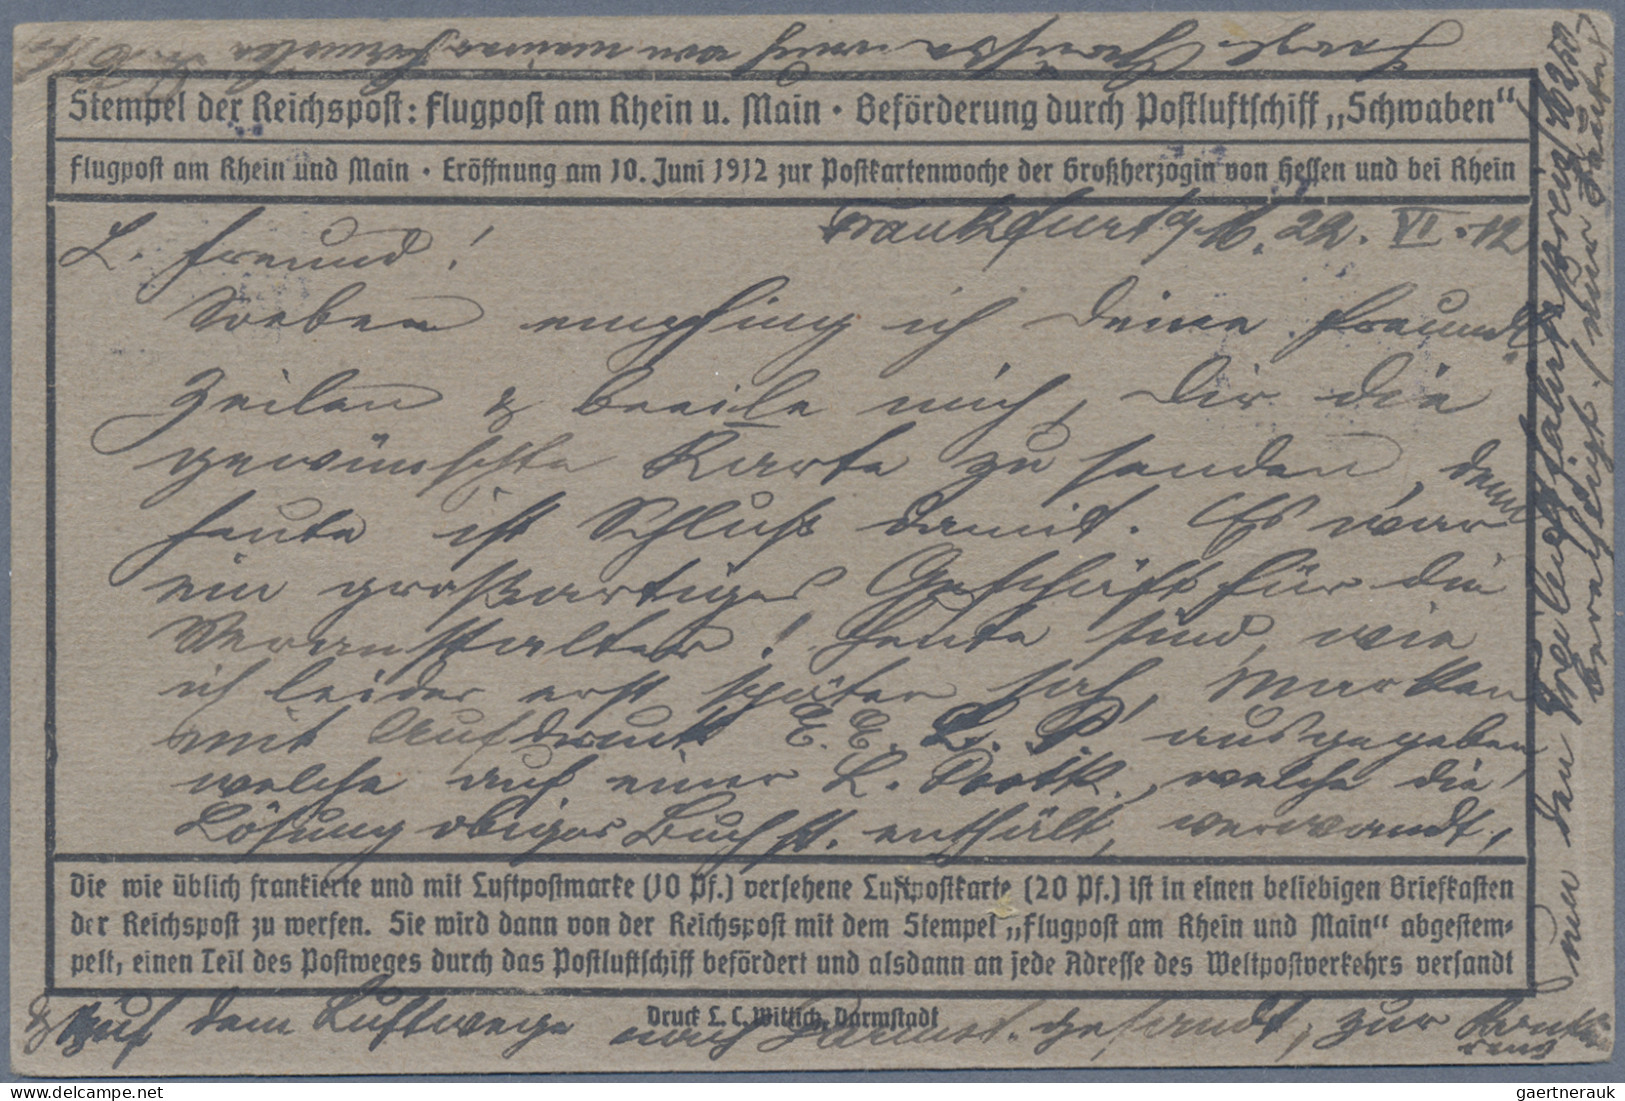 Stempel der Reichspost: Flugpost am Rhein u. Main · Beförderung durch Postluftschiff „Schwaben“
Flugpost am Rhein und Main · Eröffnung am 10. Juni 1912 zur Postkartenwoche der Großherzogin von Hessen und bei Rhein
Frankfurt 22. VI. 12
L. Freund!
Soeben empfing ich Deine freundl.
Zeilen & beeile mich, Dir die
gewünschte Karte zu senden, denn
heute ist Schluß damit. Es war
ein großartiges Geschäft für die
Veranstalter! Heute sind, wie
ich leider erst später sah, Marken
mit Aufdruck E. E. L. P. ausgegeben,
welche auf einer L. Postk., welche die
Lösung obiger Buchst. enthält, verwandt,
Die wie üblich frankierte und mit Luftpostmarke (10 Pf.) versehene Luftpostkarte (20 Pf.) ist in einen beliebigen Briefkasten
der Reichspost zu werfen. Sie wird dann von der Reichspost mit dem Stempel „Flugpost am Rhein und Main“ abgestem-
pelt, einen Teil des Postweges durch das Postluftschiff befördert und alsdann an jede Adresse des Weltpostverkehrs versandt
Druck L. C. Wittich, Darmstadt
& auf dem Luftwege nach Darmst. gesandt, zur Konkur
renz
um den
berechtigt.
Herzl. Grüsse auch von meiner
gaertnerauk